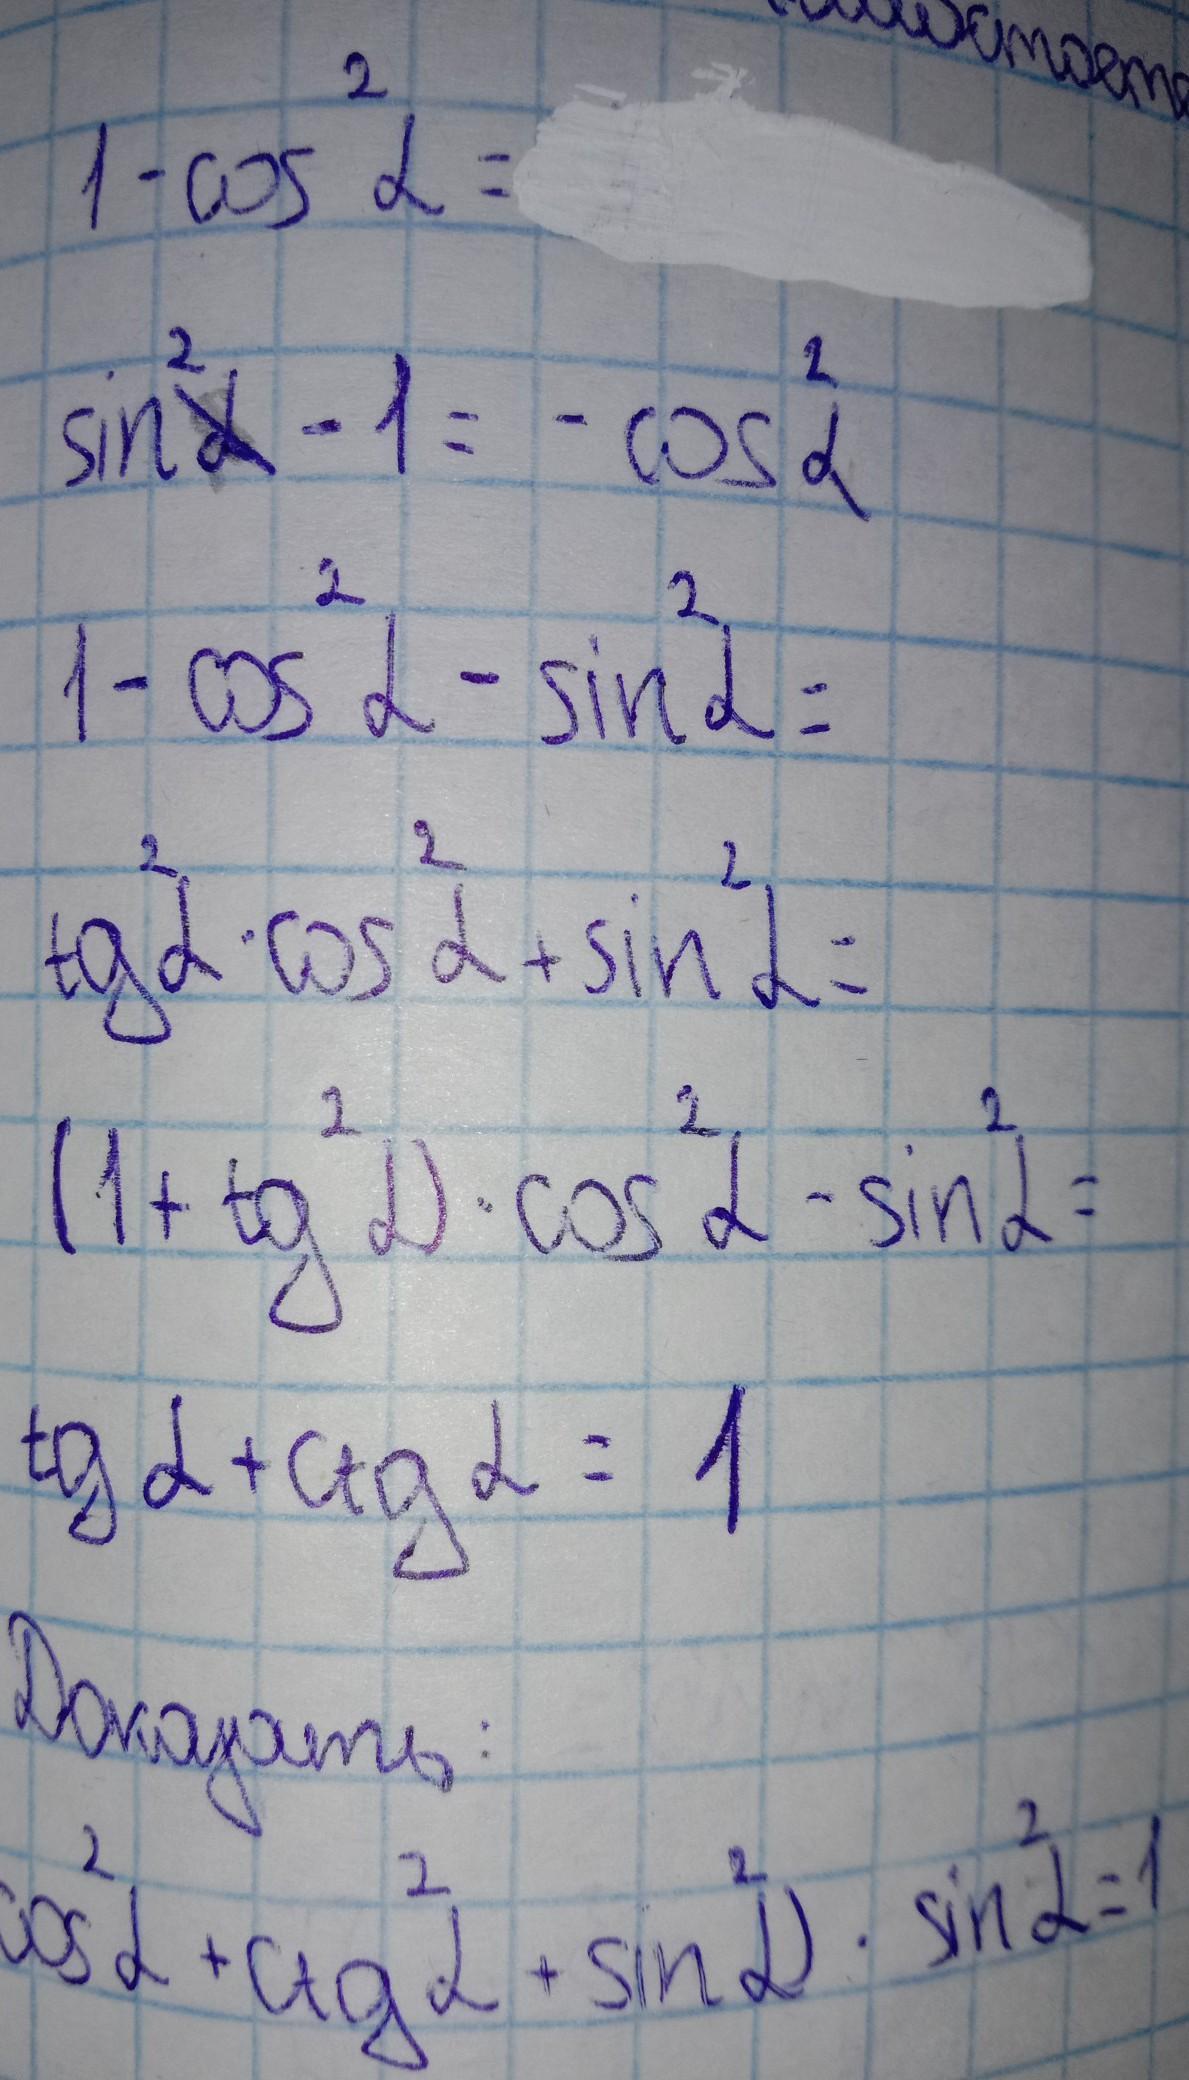 1 - cos² α =
sin² α - 1 = - cos² α
1 - cos² α - sin² α =
tg² α · cos² α + sin² α =
(1 + tg² α) · cos² α - sin² α =
tg α + ctg α = 1
Доказать:
cos² α + ctg² α + sin² α) · sin² α = 1